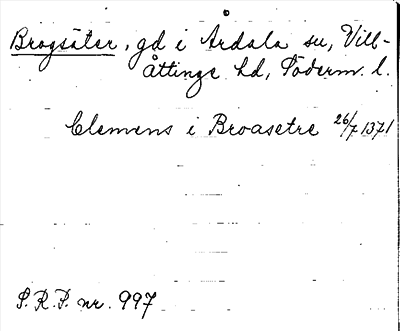 Brogsäter, gd i Årdala sn, Vill-
åttinge hd, Söderm. l.
Clemens i Broasetre 26/7 1371
S.R.P. nr. 997